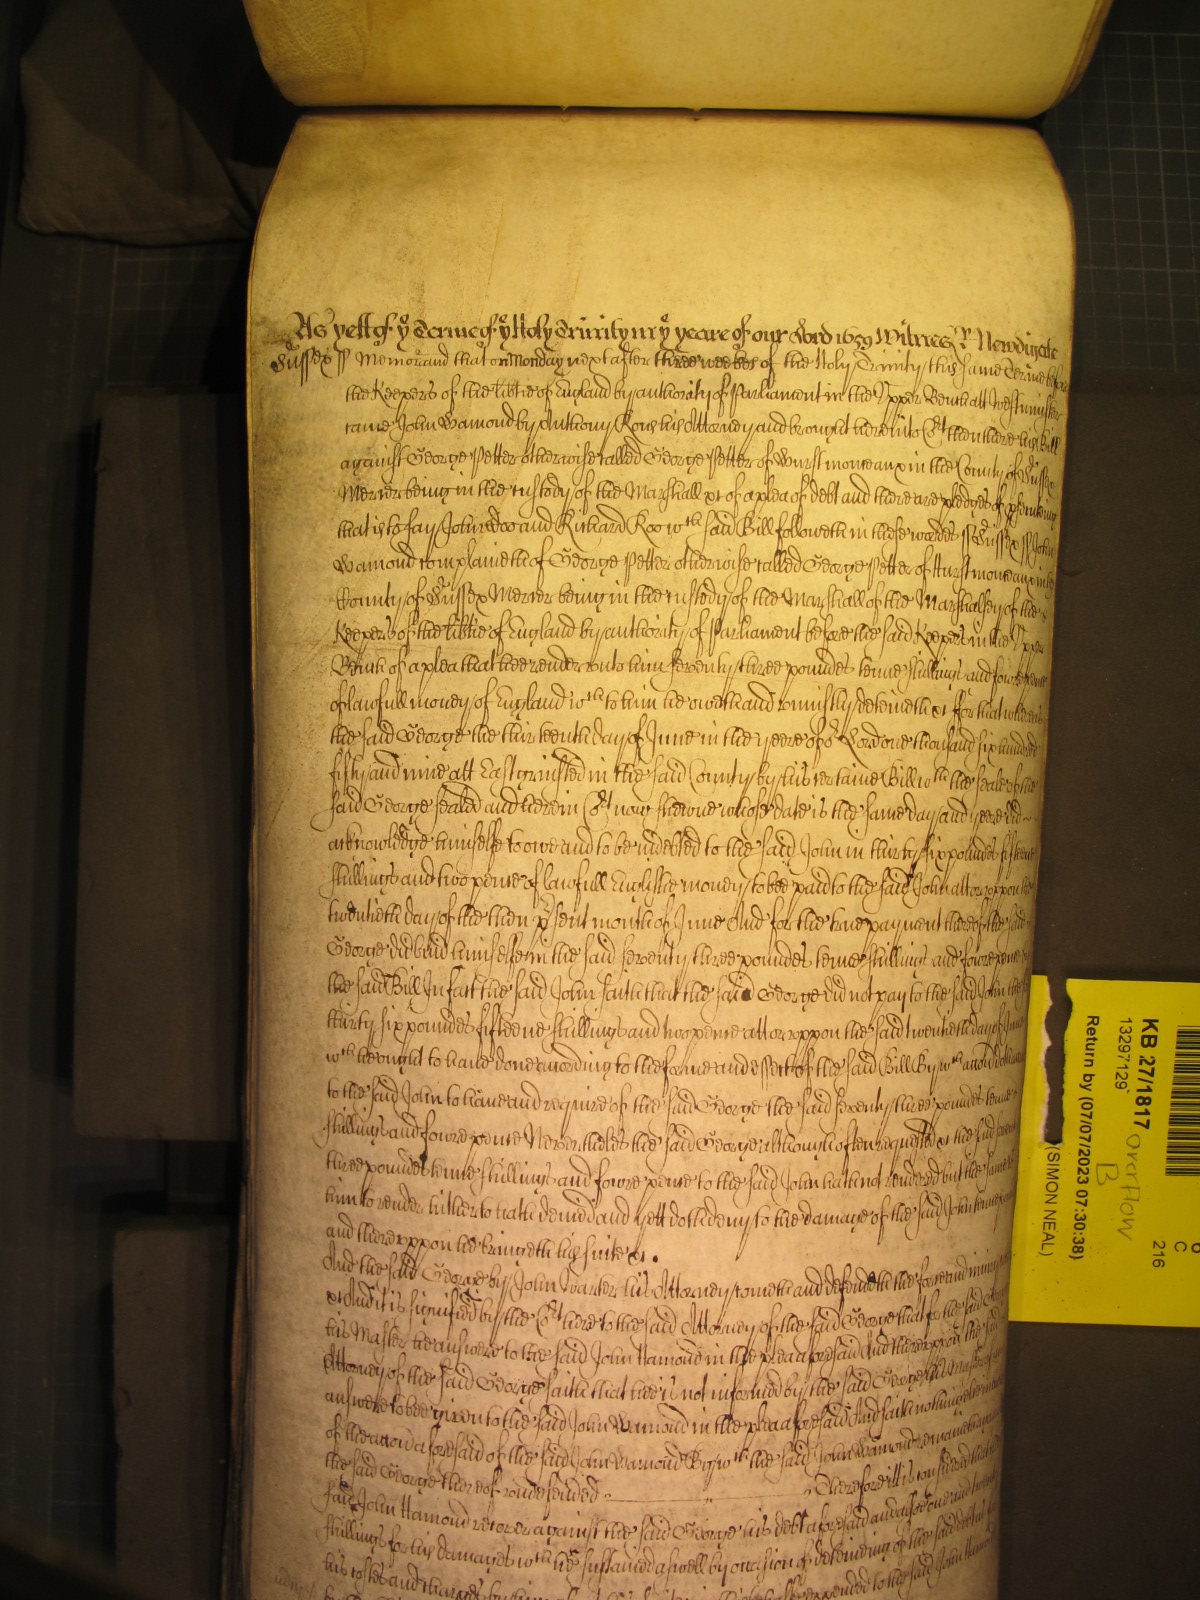 As yett of ye Terme of ye Holy Trinity in ye yeare of our Lord 1659 Witnes R Newdigate
Sussex ss Memorand that on Monday next after three weekes of the Holy Trinity this same Terme before
the Keepers of the libtie of England by authority of Parliament in the Upper Bench att Westminster
came John Hamond by Anthony his Attorney and brought here into Ct then there his Bill
against George Petter otherwise called George Petter of Hurstmonceaux in the County of Sussex
Mercer being in the custody of the Marshall &c of a plea of debt and there are pledges of
that is to say John doo and Richard Roo wch said Bill followeth in these wordes ss Sussex ss John
Hamond complaineth of George Petter otherwise called George Petter of Hurstmonceaux in the
County of Sussex Mercer being in the custody of the Marshall of the Marshalsey of the
Keepers of the libtie of England by authority of Parliament before the said Keepers in the Upper
Bench of a plea that hee render unto him seventy three poundes tenne shillings and foure pence
of lawfull money of England wch to him he oweth and uniustly deteineth &c for that whereas
the said George the thirteenth day of June in the yeere of or Lord one thousand six hundred
fifty and nine att Eastgrinsted in the said County by his certaine Bill wth the seale of the
said George sealed and here in Ct now shewne whose date is the same day and yeere did
acknowledge himselfe to owe and to be indebted to the said John in thirty six poundes fifteene
shillings and two pence of lawfull Englishe money to bee paid to the said John att or uppon the
twentieth day of the then psent month of June And for the true payment thereof the said
George did bind himselfe in the said seventy three poundes tenne shillings and foure pence
the said Bill In fact the said John saith that the said George did not pay to the said John the
thirty six poundes fifteene shillings and two pence att or uppon the said twentieth day of June
wch he ought to have done according to the forme and effect of the said Bill By wch accon
to the said John to have and require of the said George the said seventy three poundes tenne
shillings and foure pence Neverthelesse the said George although often requested &c the said seventy
three poundes tenne shillings and foure pence to the said John hath not rendered but the same to
him to render hitherto hath denied and yett doth deny to the damage of the said John tenne
and thereuppon he bringeth his suite &c.
And the said George by John Warter his Attorney cometh and defendeth the force and iniury
&c And it is signified by the Ct here to the said Attorney of the said George that for the said George
his Master he answere to the said John Hamond in the plea aforesaid And thereuppon the said
Attorney of the said George saith that he is not informed by the said George his Master of
answere to bee given to the said John Hamond in the plea aforesaid And saith nothing
of the accon aforesaid of the said John Hamond By wch the said John Hamond remaineth
the said George thereof undefended Therefore itt is considered that the
said John Hamond recover against the said George his debt aforesaid and alsoe one and
shillings for his damages wch he sustained aswell by occasion of deteineing of the said debt
his costes and charges by him the said John Hamond
KB 27/1817
13297129
Return by (07/07/2023 07:30:38)
(SIMON NEAL)
overflow
B
C
216